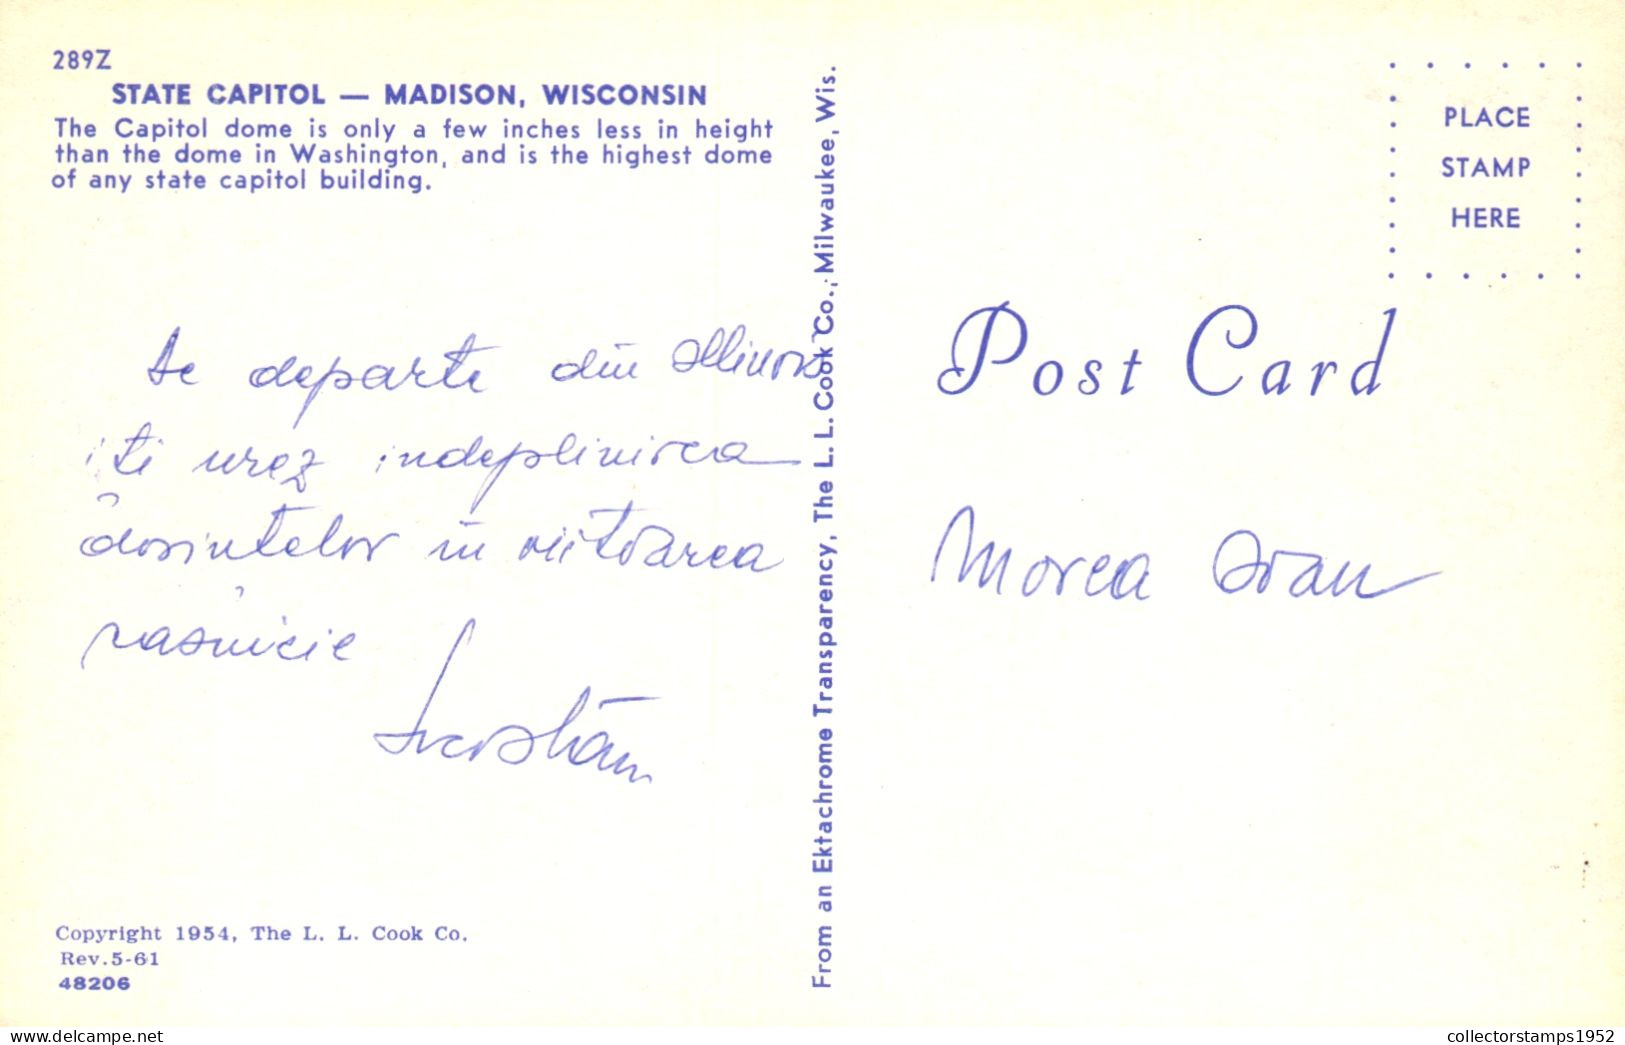 289Z
STATE CAPITOL — MADISON, WISCONSIN
The Capitol dome is only a few inches less in height
than the dome in Washington, and is the highest dome
of any state capitol building.
de departe din Illinois
iti urez indeplinirea
dorintelor in viitoarea
casnicie
Copyright 1954, The L. L. Cook Co.
Rev. 5-61
48206
From an Ektachrome Transparency, The L. L. Cook Co., Milwaukee, Wis.
PLACE
STAMP
HERE
Post Card
Morea Ioan
collectorstamps1952
www.delcampe.net